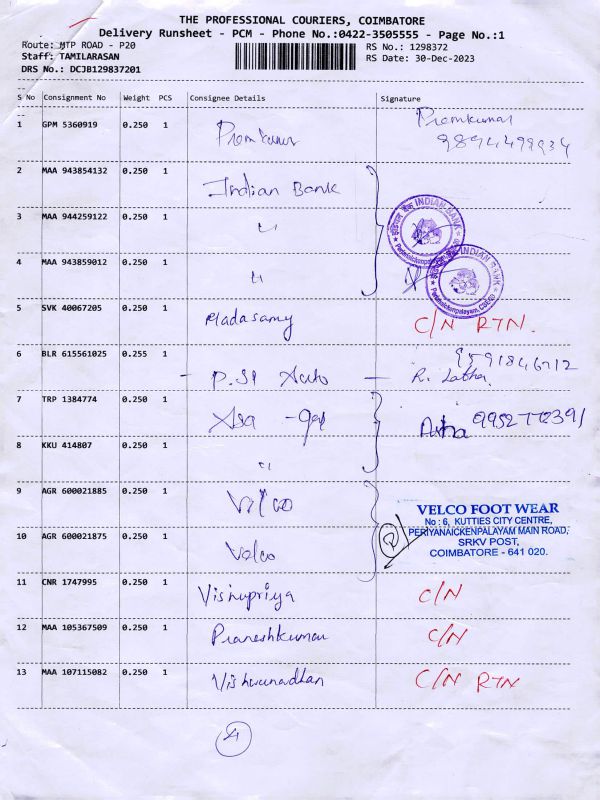 THE PROFESSIONAL COURIERS, COIMBATORE
Delivery Runsheet - PCM - Phone No.:0422-3505555 - Page No.:1
Route: MTP ROAD - P20
Staff: TAMILARASAN
DRS No.: DCJB129837201
RS No.: 1298372
RS Date: 30-Dec-2023
S No Consignment No Weight PCS Consignee Details Signature
1 GPM 5360919 0.250 1 Premkumar Premkumar
2 MAA 943854132 0.250 1 Indian Bank
3 MAA 944259122 0.250 1 〃
4 MAA 943859012 0.250 1 〃
INDIAN BANK
INDIAN BANK
5 SVK 40067205 0.250 1 Madasamy C/N RTN.
6 BLR 615561025 0.255 1 - P.SI Auto - R. Latha
7 TRP 1384774 0.250 1 Asa
8 KKU 414807 0.250 1 〃
9 AGR 600021885 0.250 1 Velco
VELCO FOOT WEAR
No : 6, KUTTIES CITY CENTRE,
PERIYANAICKENPALAYAM MAIN ROAD,
SRKV POST,
COIMBATORE - 641 020.
10 AGR 600021875 0.250 1 Velco
11 CNR 1747995 0.250 1 Vishupriya C/N
12 MAA 105367509 0.250 1 Praneshkumar C/N
13 MAA 107115082 0.250 1 Vishwanadhan C/N RTN